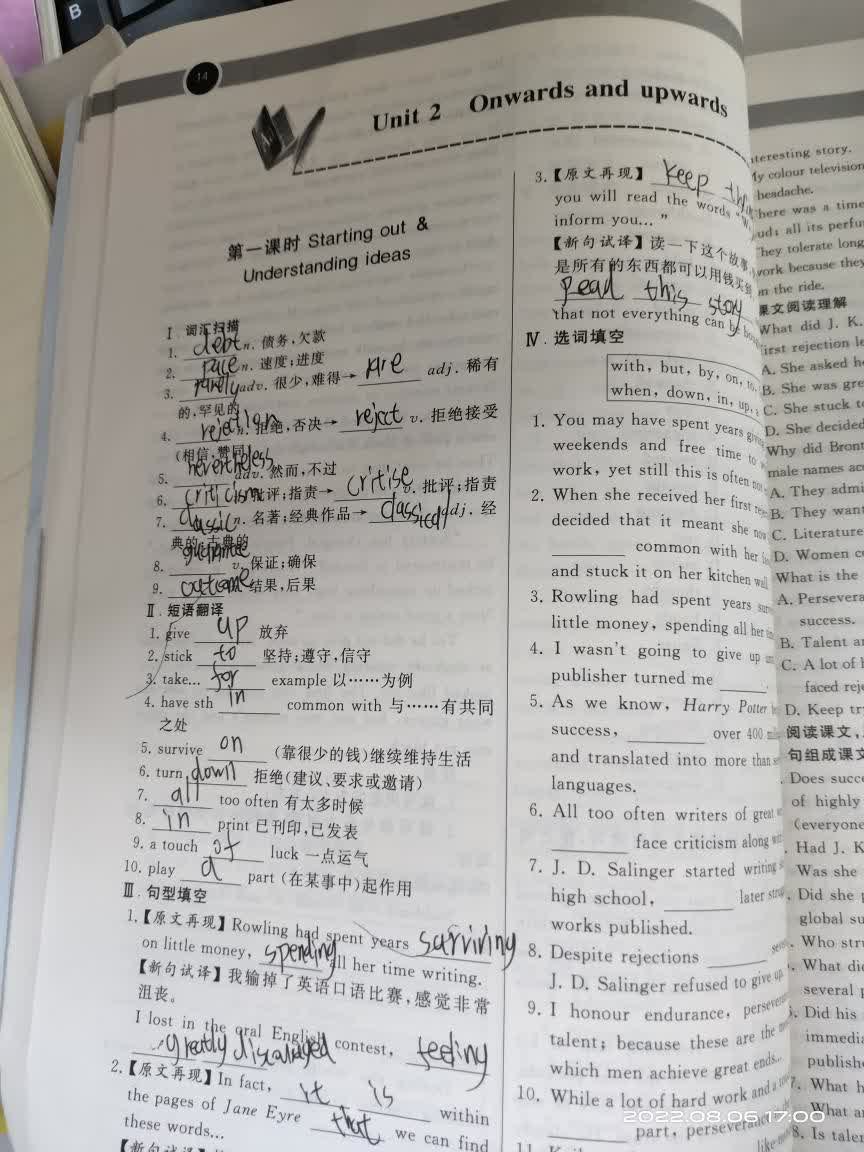 B
14
Unit 2 Onwards and upwards
第一课时 Starting out &
Understanding ideas
Ⅰ. 词汇扫描
1. debt n. 债务,欠款
2. pace n. 速度;进度
3. rarely adv. 很少,难得→ rare adj. 稀有
的,罕见的
4. rejection n. 拒绝,否决→ reject v. 拒绝接受
(相信,赞同)
5. nevertheless adv. 然而,不过
6. criticism 批评;指责→ critise v. 批评;指责
7. classic n. 名著;经典作品→ adj. 经
典的,古典的
8. guarantee v. 保证;确保
9. outcome 结果,后果
Ⅱ. 短语翻译
1. give up 放弃
2. stick to 坚持;遵守,信守
3. take... for example 以……为例
4. have sth in common with 与……有共同
之处
5. survive on (靠很少的钱)继续维持生活
6. turn down 拒绝(建议、要求或邀请)
7. all too often 有太多时候
8. in print 已刊印,已发表
9. a touch of luck 一点运气
10. play a part (在某事中)起作用
Ⅲ. 句型填空
1.【原文再现】Rowling had spent years surviring
on little money, spending all her time writing.
【新句试译】我输掉了英语口语比赛,感觉非常
沮丧。
I lost in the oral English contest, feeling
greatly
2.【原文再现】In fact, it is within
the pages of Jane Eyre that we can find
these words...
【新句试译】
3.【原文再现】 keep
you will read the words
inform you..."
【新句试译】读一下这个故事
是所有的东西都可以用钱买到
Read this story
that not everything can be
Ⅳ. 选词填空
with, but, by, on, to,
when, down, in, up,
1. You may have spent years
weekends and free time to
work, yet still this is often
2. When she received her first
decided that it meant she now
common with her
and stuck it on her kitchen wall
3. Rowling had spent years
little money, spending all her
4. I wasn't going to give up
publisher turned me
5. As we know, Harry Potter
success, over 400
and translated into more than
languages.
6. All too often writers of great
face criticism along
7. J. D. Salinger started writing
high school, later
works published.
8. Despite rejections
J. D. Salinger refused to give up
9. I honour endurance, perseverance
talent; because these are the
which men achieve great ends...
10. While a lot of hard work and a
part, perseverance
11.
interesting story.
My colour television
headache.
There was a time
all its
They tolerate long
work because they
on the ride.
课文阅读理解
What did J. K.
first rejection
A. She asked
B. She was
C. She stuck
D. She decided
Why did
male names
A. They
B. They want
C. Literature
D. Women
What is the
A.
success.
B. Talent
C. A lot of
faced
D. Keep
阅读课文,
句组成课文
Does
of highly
(everyone
Had J. K
Was she
Did she
global
Who
What did
several
Did his
What
What
8. Is
2022.08.06 17:00